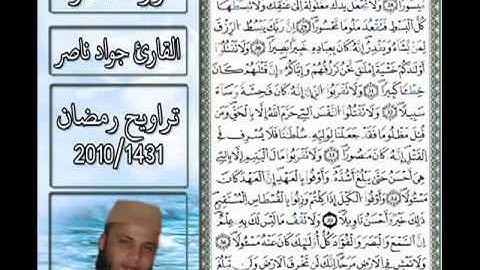 مَيْسُورًا وَلَا تَجْعَلْ يَدَكَ مَغْلُولَةً إِلَىٰ عُنُقِكَ وَلَا تَبْسُطْهَا
كُلَّ الْبَسْطِ فَتَقْعُدَ مَلُومًا مَحْسُورًا إِنَّ رَبَّكَ يَبْسُطُ الرِّزْقَ
لِمَنْ يَشَاءُ وَيَقْدِرُ إِنَّهُ كَانَ بِعِبَادِهِ خَبِيرًا بَصِيرًا وَلَا تَقْتُلُوا
أَوْلَٰدَكُمْ خَشْيَةَ إِمْلَٰقٍ نَحْنُ نَرْزُقُهُمْ وَإِيَّاكُمْ إِنَّ قَتْلَهُمْ كَانَ
خِطْـًٔا كَبِيرًا وَلَا تَقْرَبُوا الزِّنَىٰ إِنَّهُ كَانَ فَٰحِشَةً وَسَاءَ
سَبِيلًا وَلَا تَقْتُلُوا النَّفْسَ الَّتِي حَرَّمَ اللَّهُ إِلَّا بِالْحَقِّ وَمَنْ
قُتِلَ مَظْلُومًا فَقَدْ جَعَلْنَا لِوَلِيِّهِ سُلْطَٰنًا فَلَا يُسْرِفْ فِي
الْقَتْلِ إِنَّهُ كَانَ مَنْصُورًا وَلَا تَقْرَبُوا مَالَ الْيَتِيمِ إِلَّا بِالَّتِي
هِيَ أَحْسَنُ حَتَّىٰ يَبْلُغَ أَشُدَّهُ وَأَوْفُوا بِالْعَهْدِ إِنَّ الْعَهْدَ كَانَ
مَسْئُولًا وَأَوْفُوا الْكَيْلَ إِذَا كِلْتُمْ وَزِنُوا بِالْقِسْطَاسِ الْمُسْتَقِيمِ
ذَٰلِكَ خَيْرٌ وَأَحْسَنُ تَأْوِيلًا وَلَا تَقْفُ مَا لَيْسَ لَكَ بِهِ عِلْمٌ
إِنَّ السَّمْعَ وَالْبَصَرَ وَالْفُؤَادَ كُلُّ أُولَٰئِكَ كَانَ عَنْهُ مَسْئُولًا
وَلَا تَمْشِ فِي الْأَرْضِ مَرَحًا إِنَّكَ لَنْ تَخْرِقَ الْأَرْضَ وَلَنْ تَبْلُغَ
القارئ جواد ناصر
تراويح رمضان
2010/1431